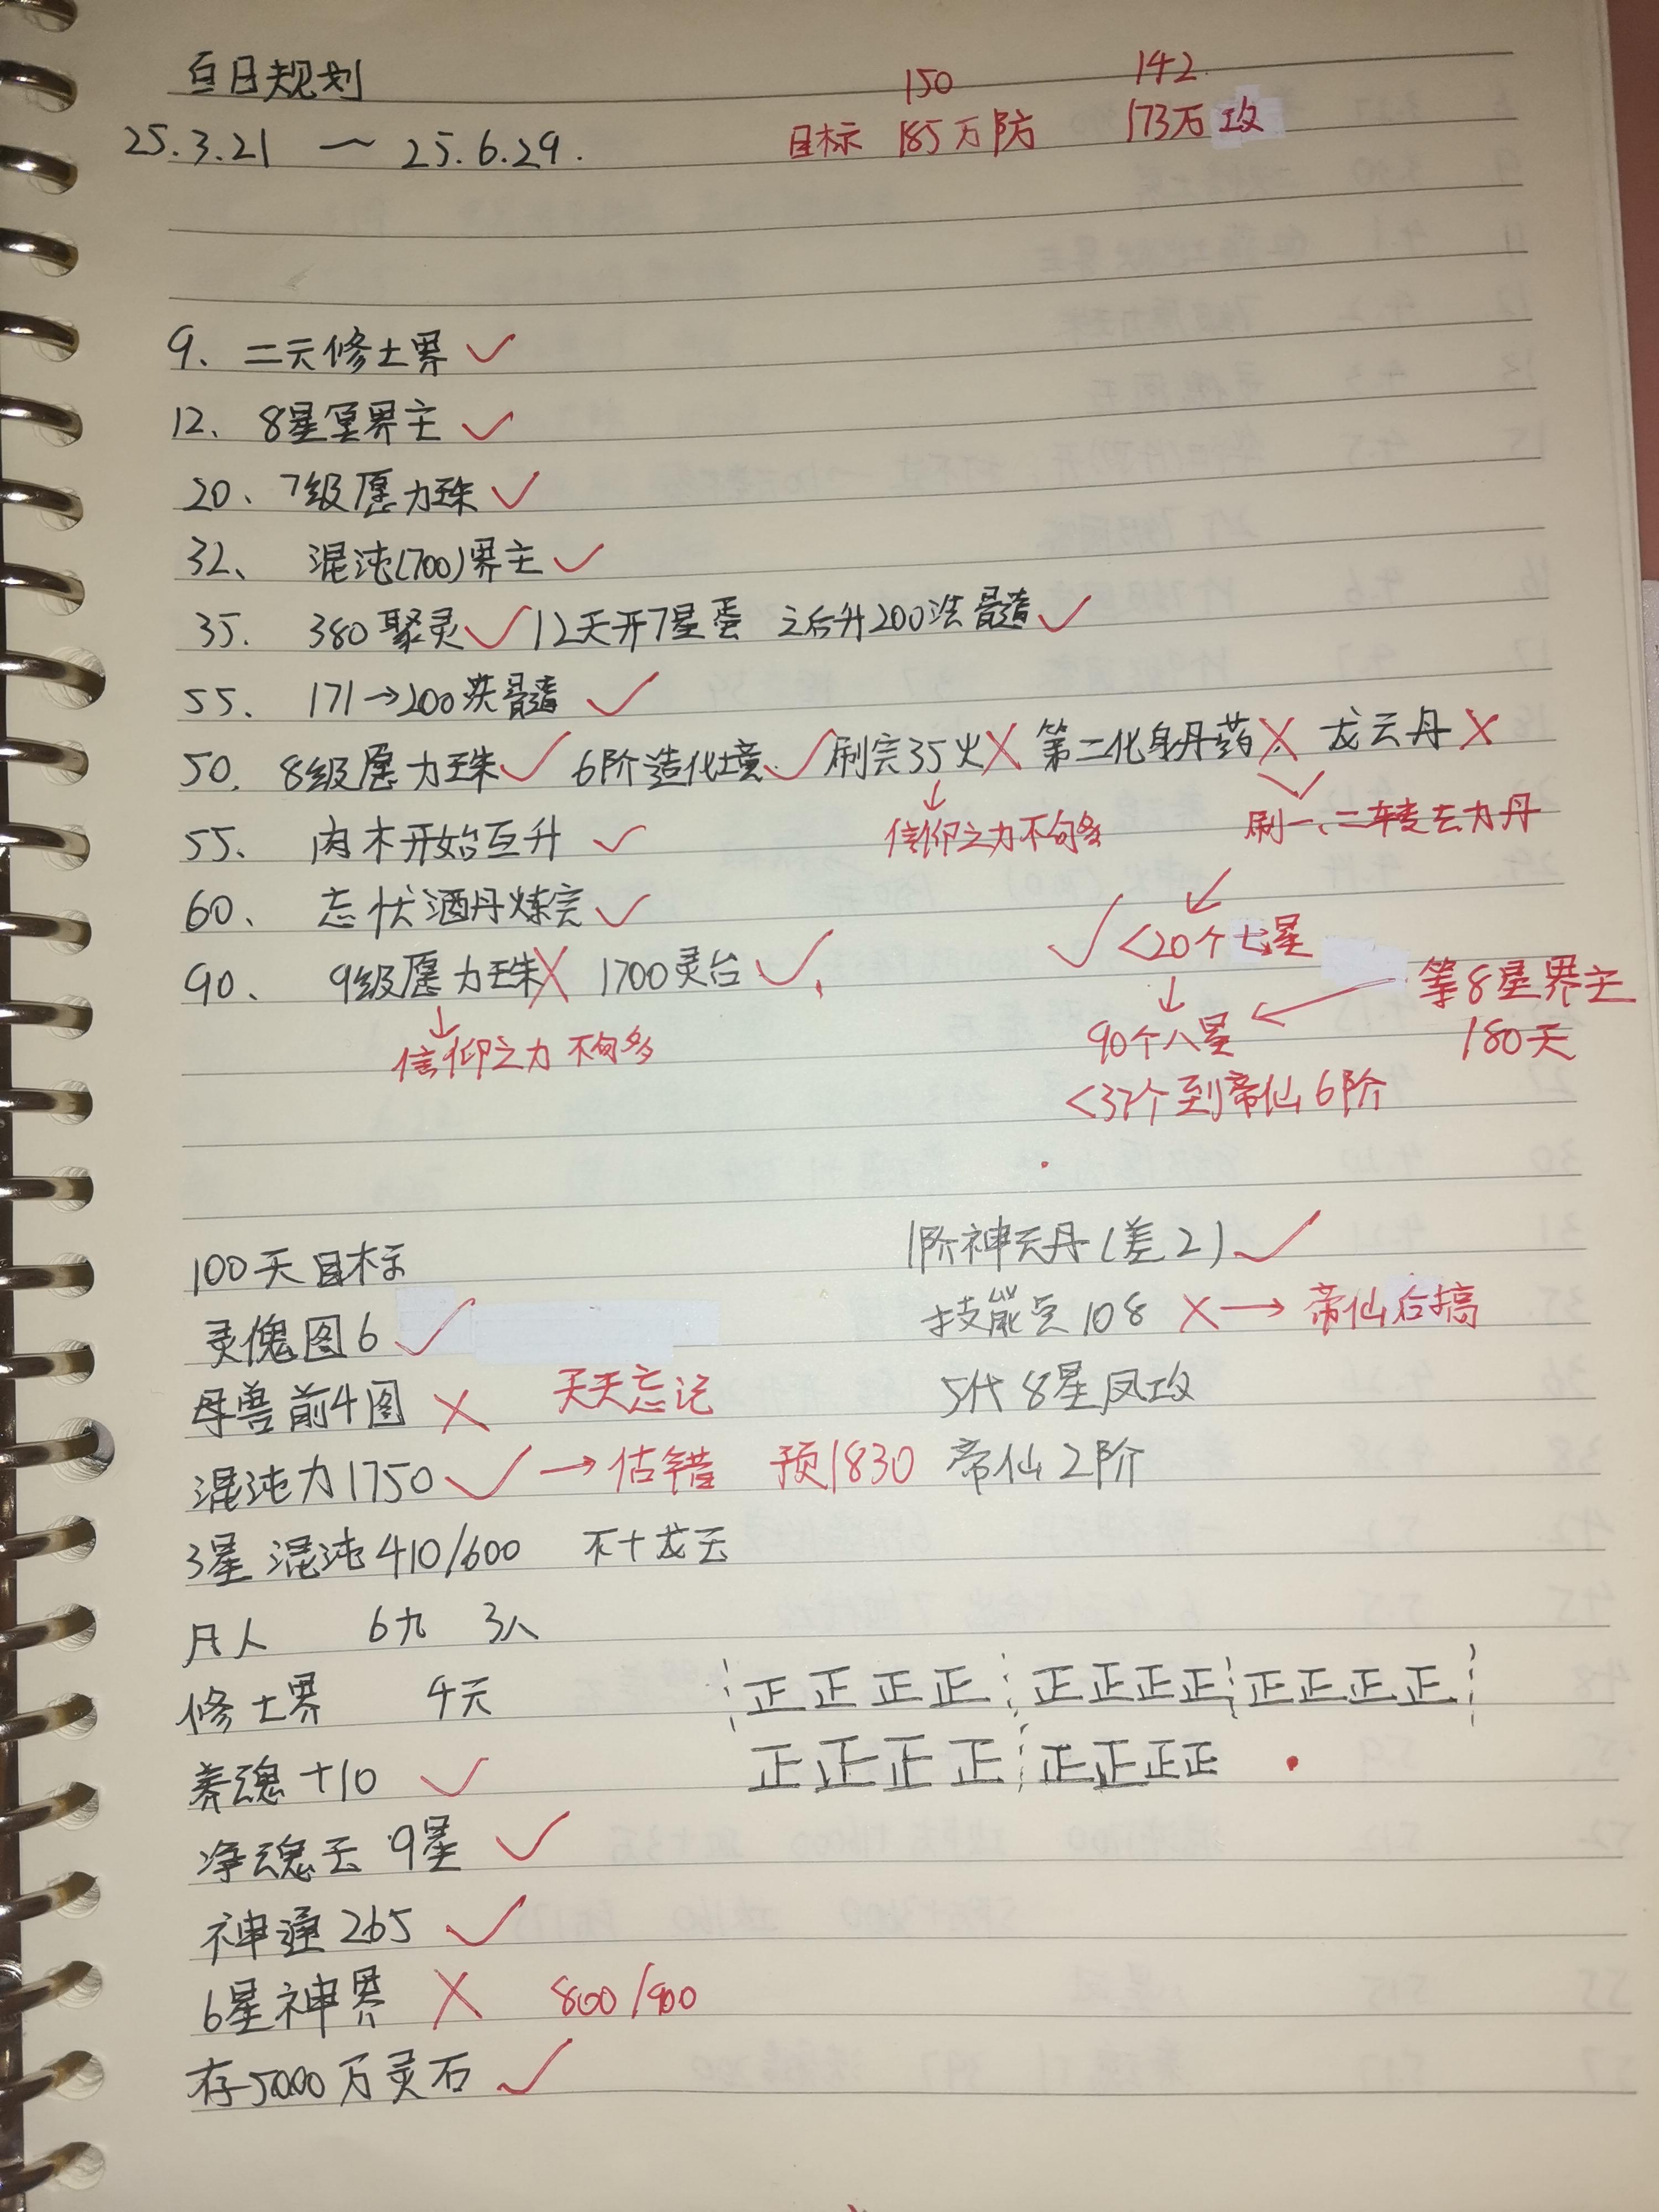 150 142
百日规划
目标 185万防 173万攻
25.3.21 — 25.6.29.
9、二云修士界 ✓
12、8星冥界主 ✓
20、7级愿力珠 ✓
32、混沌(700)界主 ✓
35. 380聚灵 ✓ 12天开7星蛋 之后升200洗骨髓 ✓
55、171→200洗骨髓 ✓
50. 8级愿力珠 ✓ 6阶造化境 ✓ 刷完35火 X 第二化身丹药 X 龙云丹 X
↓ 信仰之力不旬多
刷一、二转去力丹
55、肉木开始互升 ✓
60、忘忧酒丹炼完 ✓
✓ <20个七星
90、9级愿力珠 X 1700灵台 ✓
等8星界主
180天
↓ 信仰之力 不旬多
90个八星 ←
<37个到帝仙6阶
100天目标
1阶神云丹(差2) ✓
灵傀图6 ✓
技能点108 X → 帝仙后搞
母兽前4图 X 天天忘记
5代8星凤攻
混沌力1750 ✓ → 估错 预1830
帝仙2阶
3星混沌410/600 不+龙云
凡人 6九 3八
修士界 4天
正正正正 正正正正 正正正正
正正正正 正正正正
养魂+10 ✓
净魂云 9星 ✓
神通265 ✓
6星神界 X 800/900
存5000万灵石 ✓